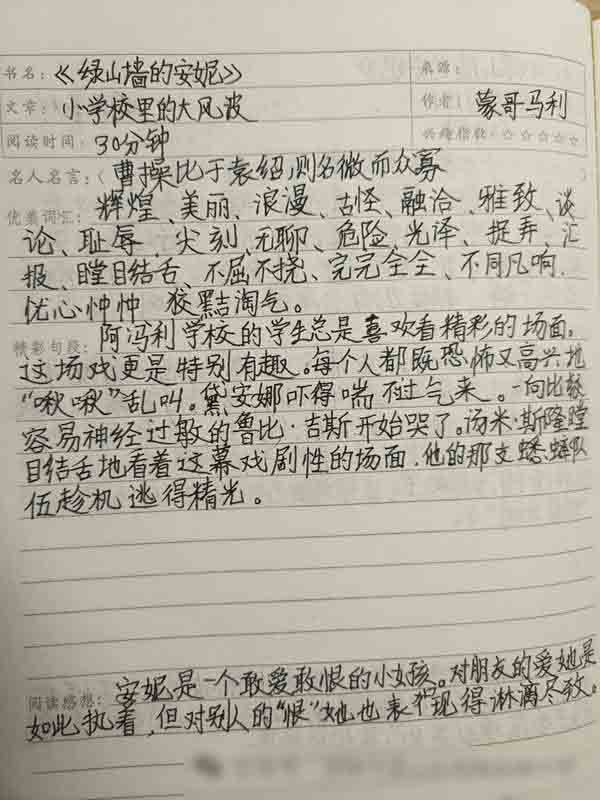 书名：《绿山墙的安妮》 来源：
文章：小学校里的大风波 作者：蒙哥马利
阅读时间：30分钟 兴趣指数：☆☆☆☆☆
名人名言：（曹操比于袁绍，则名微而众寡
优美词汇：辉煌、美丽、浪漫、古怪、融洽、雅致、谈
论、耻辱、尖刻、无聊、危险、光泽、捉弄、汇
报、瞠目结舌、不屈不挠、完完全全、不同凡响、
忧心忡忡 狡黠淘气。
阿冯利学校的学生总是喜欢看精彩的场面。
精彩句段：
这场戏更是特别有趣。每个人都既恐怖又高兴地
“啾啾”乱叫。黛安娜吓得喘不过气来。一向比较
容易神经过敏的鲁比·吉斯开始哭了。汤米·斯隆瞠
目结舌地看着这幕戏剧性的场面，他的那支蟋蟀队
伍趁机逃得精光。
阅读感想：安妮是一个敢爱敢恨的小女孩。对朋友的爱她是
如此执着，但对别人的“恨”她也表现得淋漓尽致。